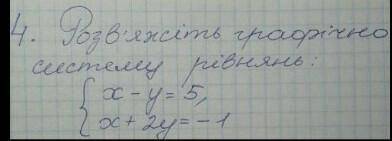 4. Розв'яжіть графічно
систему рівнянь:
{ x - y = 5,
x + 2y = -1